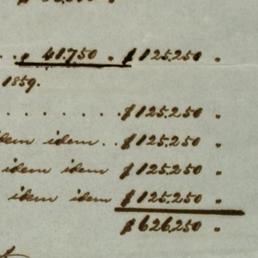 $ 41.750 . $ 125.250 .
1859.
. . . . . . . . $ 125.250 .
idem idem . . $ 125.250 .
idem idem $ 125.250 .
idem idem $ 125.250 .
$ 626.250 .